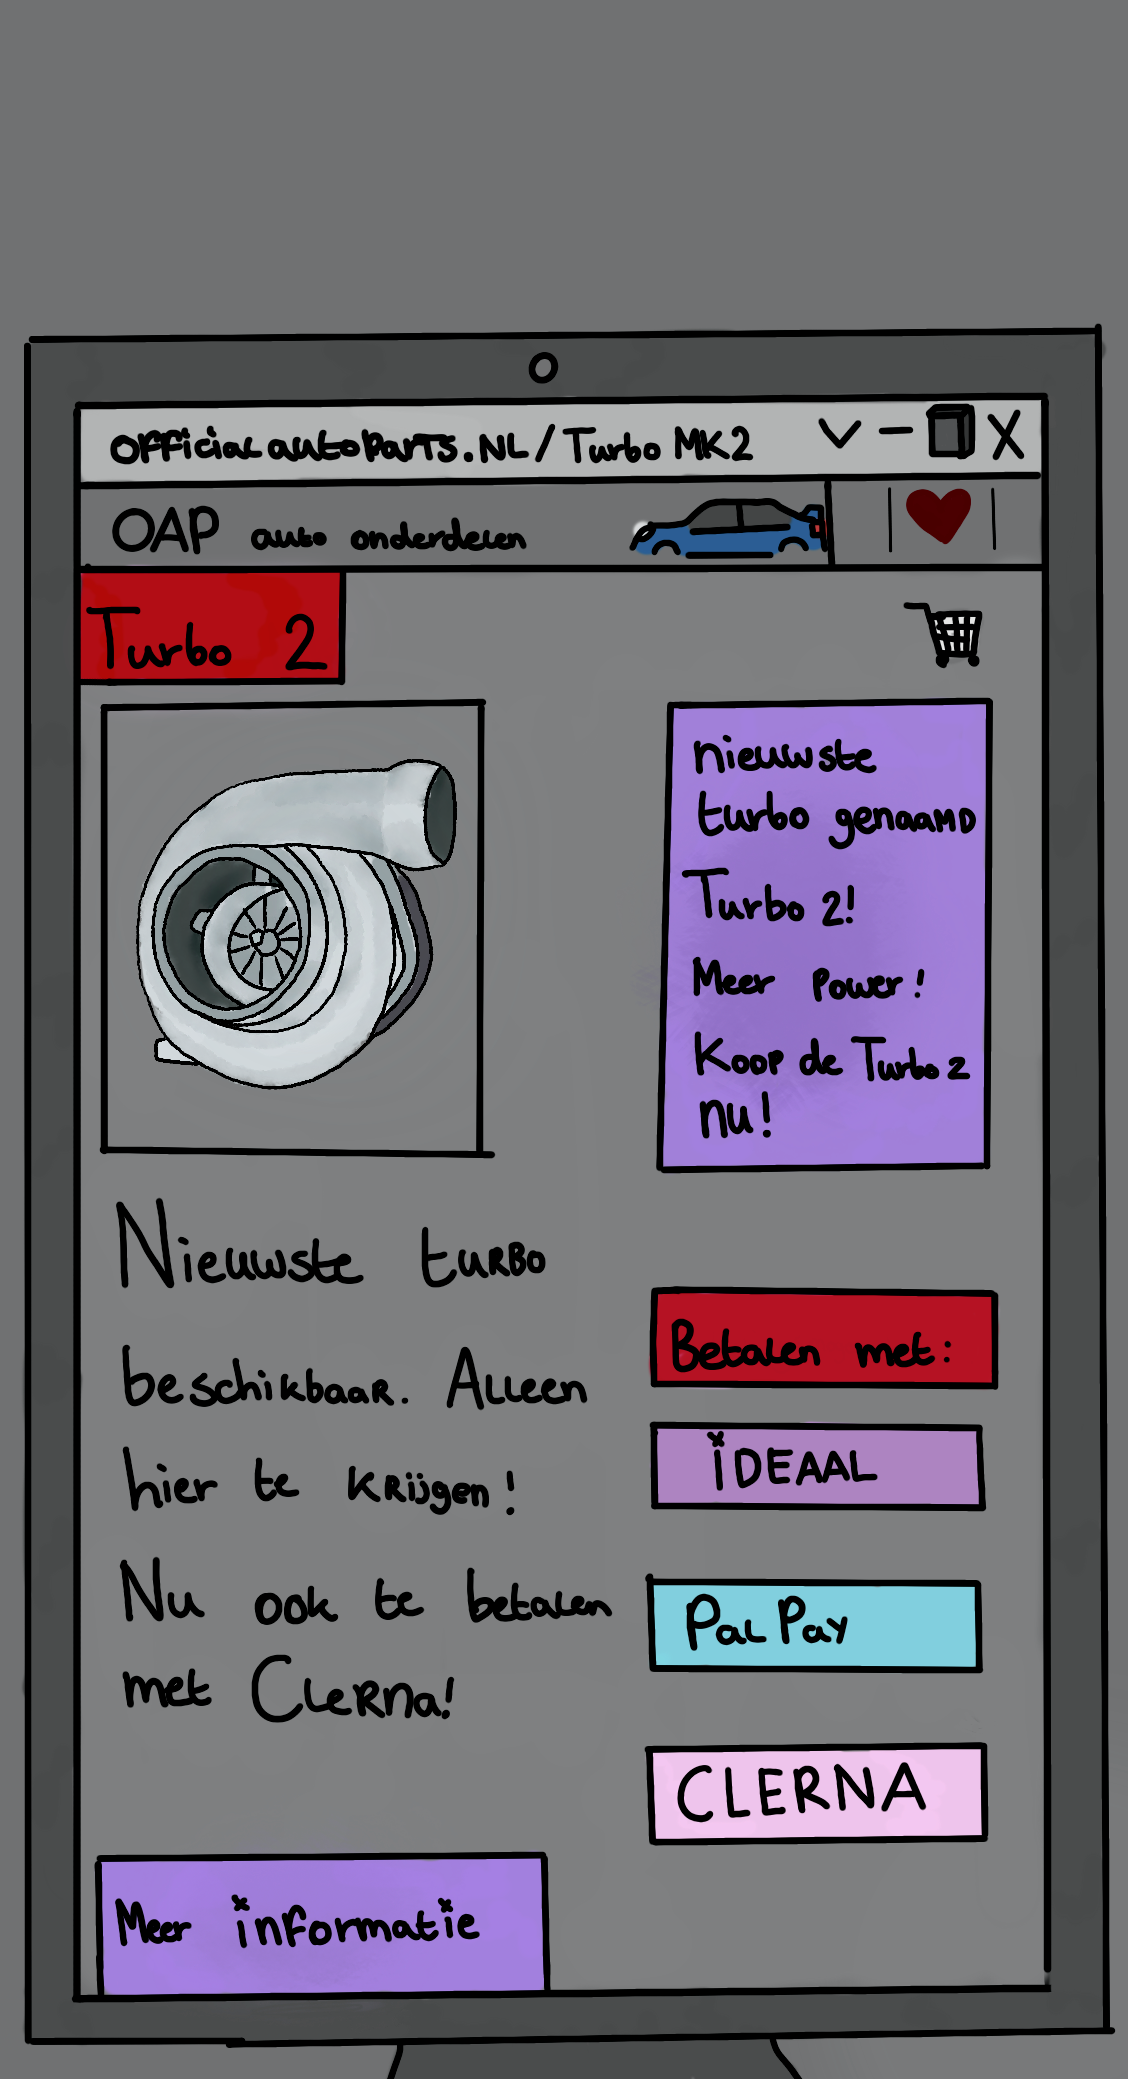 officialautoparts.NL/Turbo MK2
OAP auto onderdelen
Turbo 2
nieuwste
turbo genaamd
Turbo 2!
Meer power!
Koop de Turbo 2
nu!
Nieuwste turbo
beschikbaar. Alleen
hier te krijgen!
Nu ook te betalen
met Clerna!
Betalen met:
iDEAAL
PalPay
CLERNA
Meer informatie